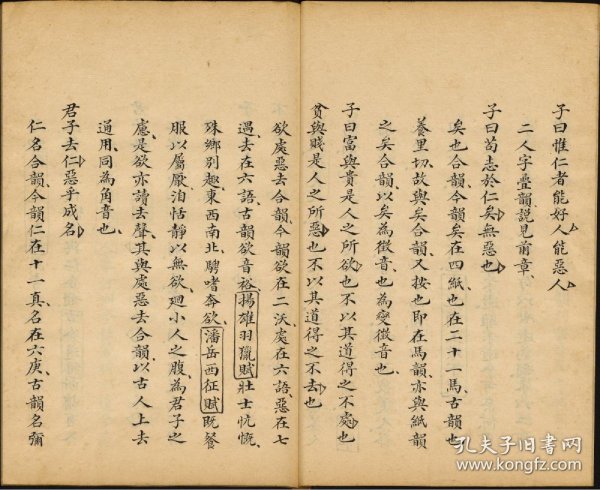 子曰惟仁者能好人能惡人
二人字疊韻說見前章
子曰苟志於仁矣無惡也
矣也合韻今韻矣在四紙也在二十一馬古韻也
養里切故與矣合韻又按也即在馬韻亦與紙韻
之矣合韻以矣為徵音也為變徵音也
子曰富與貴是人之所欲也不以其道得之不處也
貧與賤是人之所惡也不以其道得之不去也
欲處惡去合韻今韻欲在二沃處在六語惡在七
遇去在六語古韻欲音裕揚雄羽獵賦壯士忼慨
殊鄉別趣東西南北騁嗜奔欲潘岳西征賦既餐
服以屬厭泊恬靜以無欲迴小人之腹為君子之
慮是欲亦讀去聲其與處惡去合韻以古人上去
通用同為角音也
君子去仁惡乎成名
仁名合韻今韻仁在十一真名在六庚古韻名彌
孔夫子旧書网
www.kongfz.com